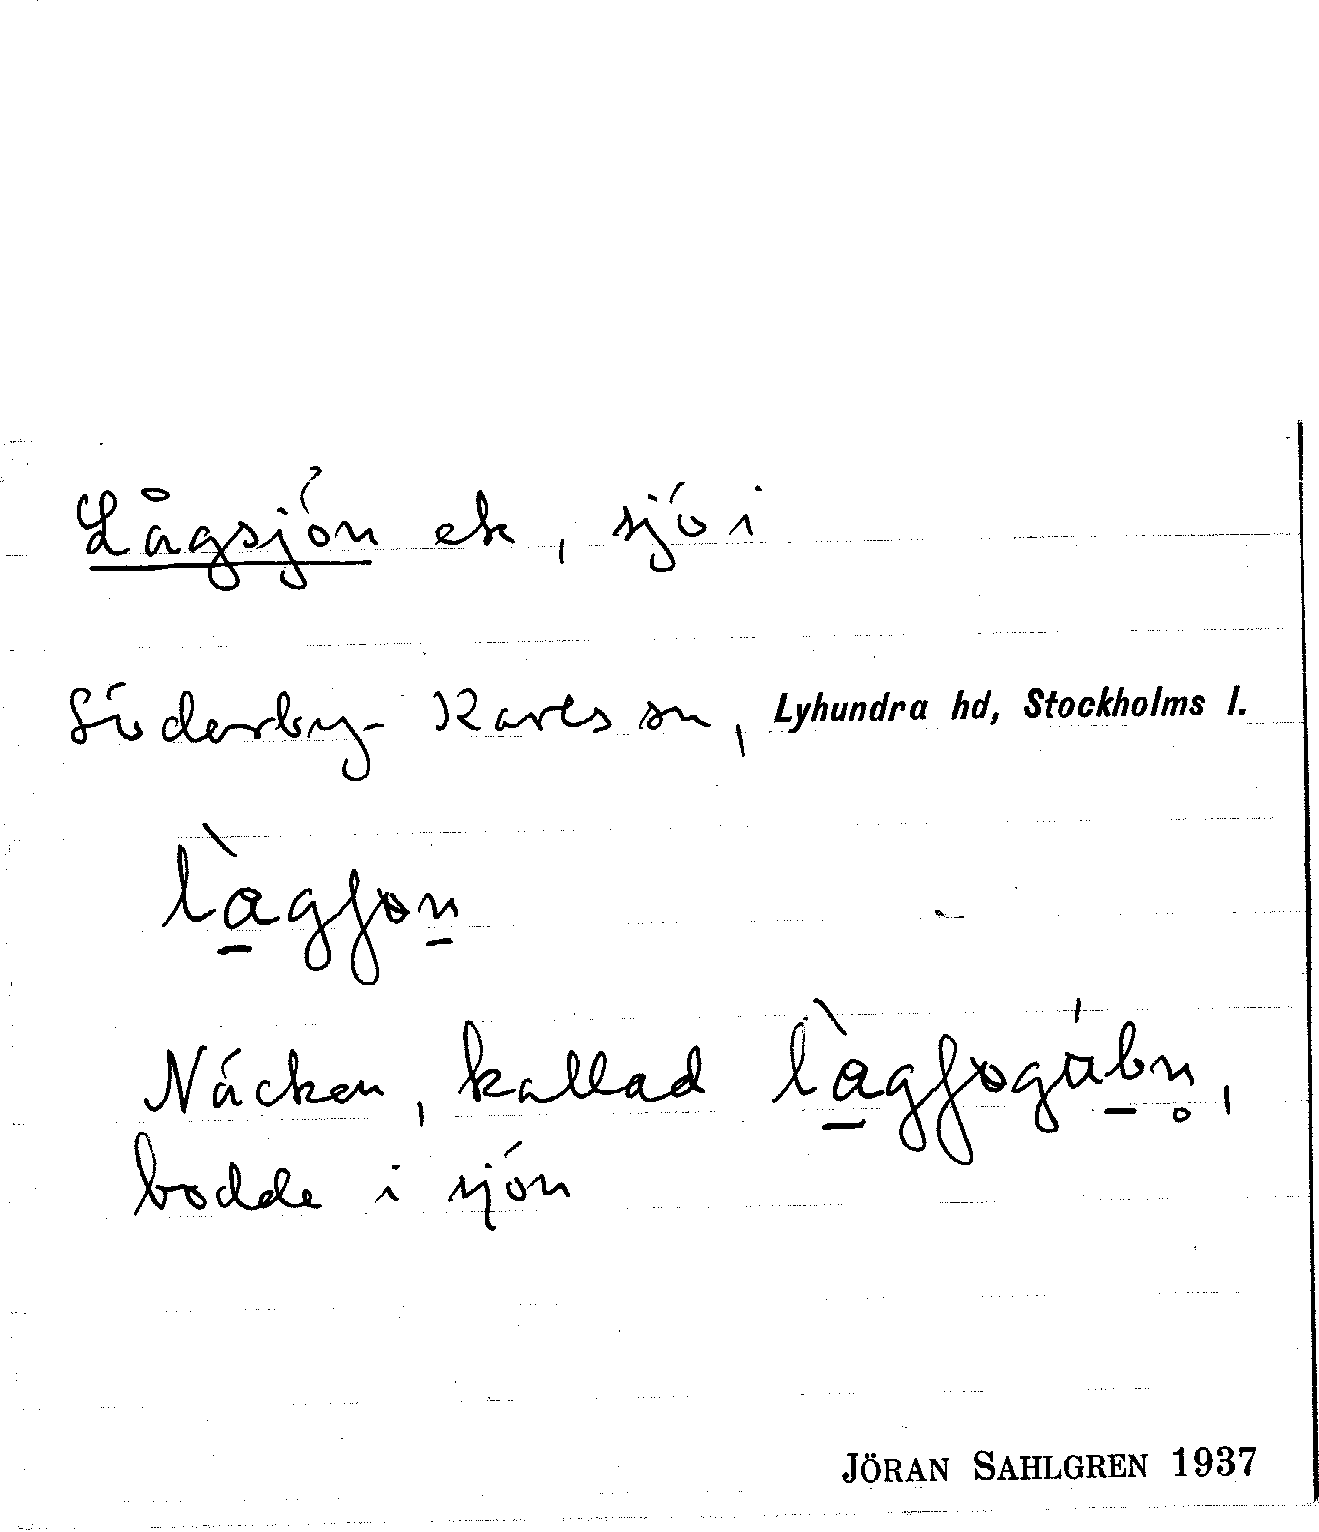 Lågsjön ek, sjö i
Söderby-Karls sn, Lyhundra hd, Stockholms l.
Näcken, kallad
bodde i sjön
JÖRAN SAHLGREN 1937